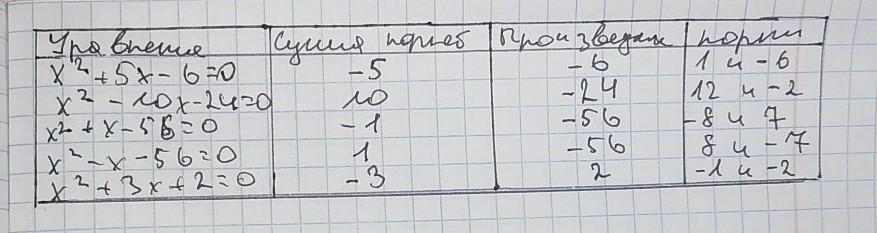 Уравнение Сумма корней Произведен корни
x² + 5x - 6 = 0 -5 -6 1 и -6
x² - 10x - 24 = 0 10 -24 12 и -2
x² + x - 56 = 0 -1 -56 -8 и 7
x² - x - 56 = 0 1 -56 8 и -7
x² + 3x + 2 = 0 -3 2 -1 и -2